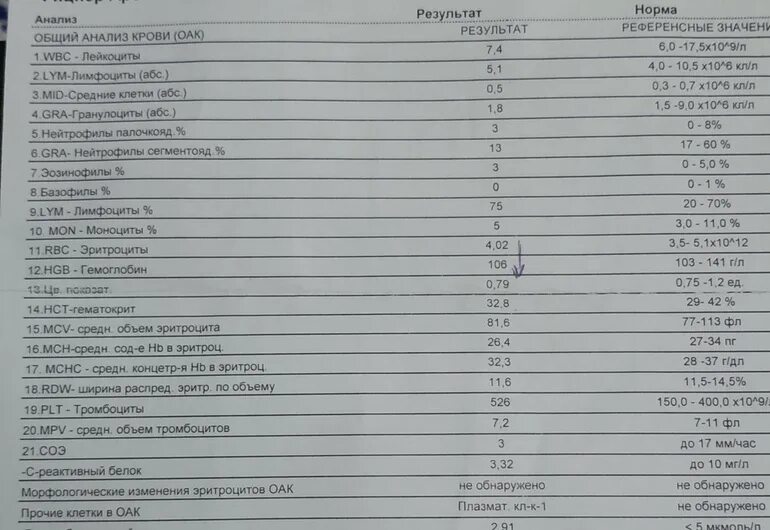 Анализ Результат Норма
ОБЩИЙ АНАЛИЗ КРОВИ (ОАК) РЕЗУЛЬТАТ РЕФЕРЕНСНЫЕ ЗНАЧЕНИ
1.WBC - Лейкоциты 7,4 6,0 -17,5x10^9/л
2.LYM-Лимфоциты (абс.) 5,1 4,0 - 10,5 x10^6 кл/л
3.MID-Средние клетки (абс.) 0,5 0,3 - 0,7 x10^6 кл/л
4.GRA-Гранулоциты (абс.) 1,8 1,5 -9,0 x10^6 кл/л
5.Нейтрофилы палочкояд.% 3 0 - 8%
6.GRA- Нейтрофилы сегментояд.% 13 17 - 60 %
7.Эозинофилы % 3 0 - 5,0 %
8.Базофилы % 0 0 - 1 %
9.LYM - Лимфоциты % 75 20 - 70%
10. MON - Моноциты % 5 3,0 - 11,0 %
11.RBC - Эритроциты 4,02 3,5- 5,1x10^12
12.HGB - Гемоглобин 106 103 - 141 г/л
13.Цв. показат. 0,79 0,75 -1,2 ед.
14.HCT-гематокрит 32,8 29- 42 %
15.MCV- средн. объем эритроцита 81,6 77-113 фл
16.MCH-средн. сод-е Hb в эритроц. 26,4 27-34 пг
17. MCHC- средн. концетр-я Hb в эритроц. 32,3 28 -37 г/дл
18.RDW- ширина распред. эритр. по объему 11,6 11,5-14,5%
19.PLT - Тромбоциты 526 150,0 - 400,0 x10^9/
20.MPV - средн. объем тромбоцитов 7,2 7-11 фл
21.СОЭ 3 до 17 мм/час
-С-реактивный белок 3,32 до 10 мг/л
Морфологические изменения эритроцитов ОАК не обнаружено не обнаружено
Прочие клетки в ОАК Плазмат. кл-к-1 не обнаружено
2,91 < 5 мкмоль/л